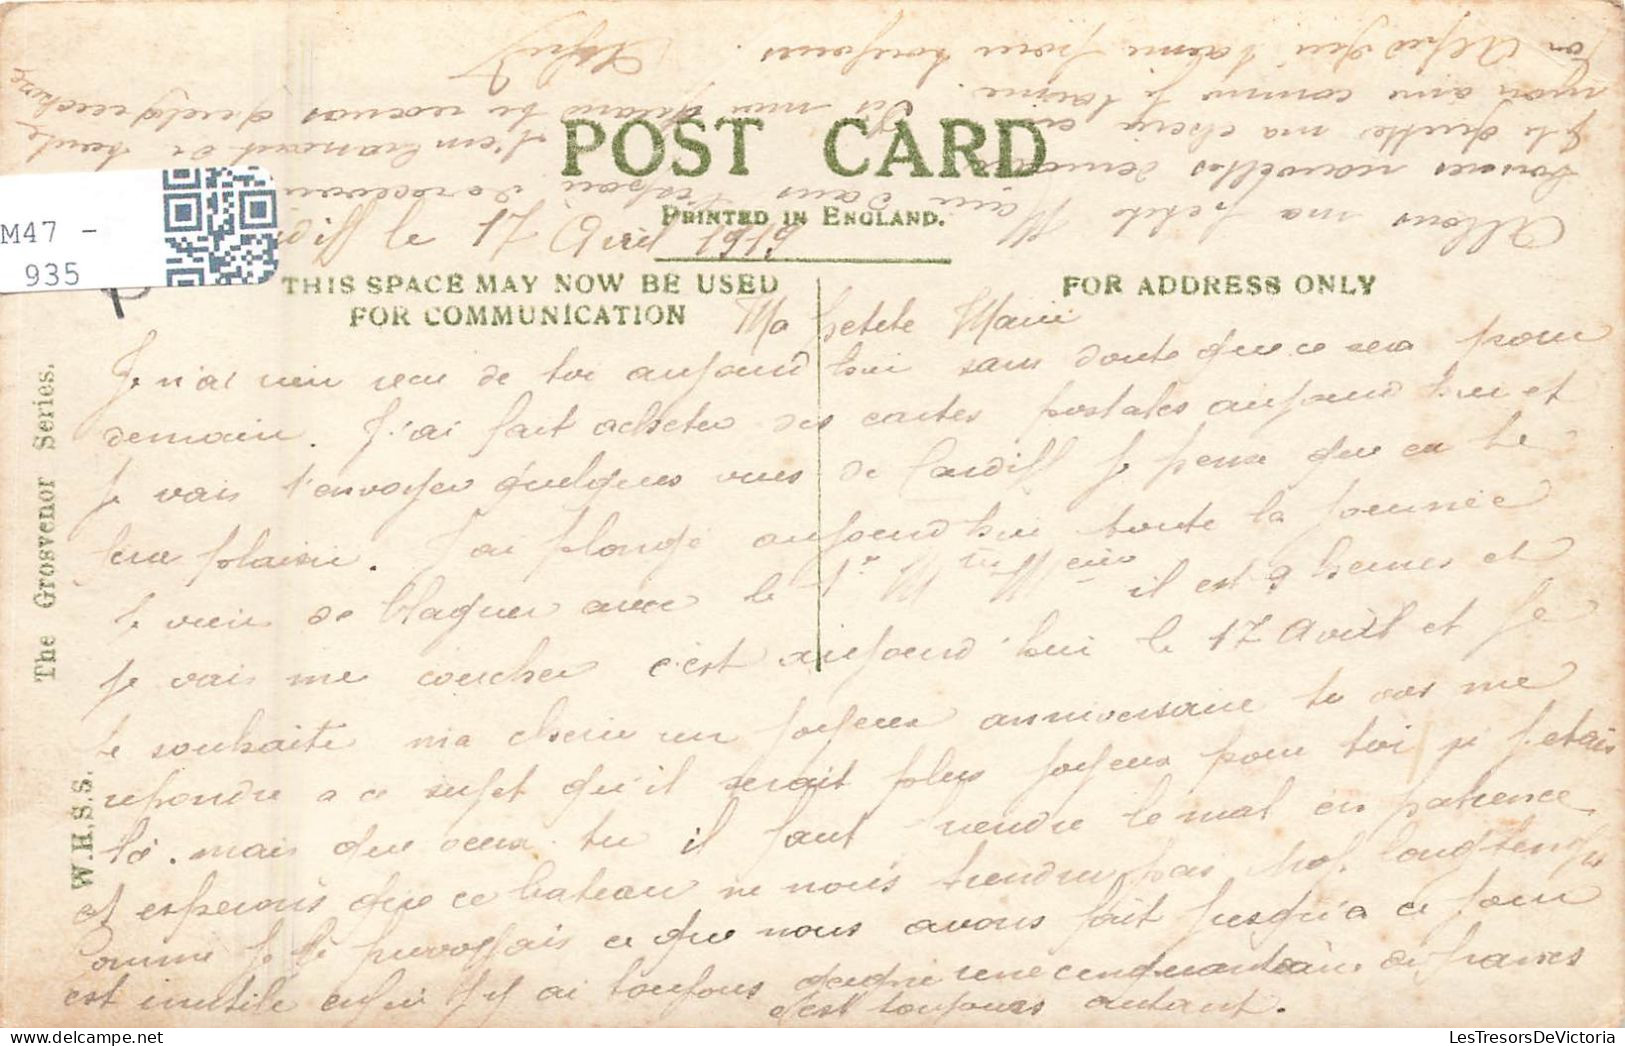 M47 -
935
POST CARD
PRINTED IN ENGLAND.
THIS SPACE MAY NOW BE USED
FOR COMMUNICATION
FOR ADDRESS ONLY
The Grosvenor Series.
W.H.S.S.
diff le 17 Avril 1919
Ma petite Marie
Je n'ai rien recu de toi aujourd hui sans doute que ce sera pour
demain. J'ai fait acheter des cartes postales aujourd hui et
je vais t'envoyer quelques vues de Cardiff je pense que ca te
fera plaisir. J'ai plongé aujourd hui toute la journée
je viens de blaguer avec le 1er il est 9 heures et
je vais me coucher c'est aujourd'hui le 17 Avril et je
te souhaite ma cherie un joyeux anniversaire tu vas me
repondre a ce sujet qu'il serait plus joyeux pour toi si j'etais
là. mais que veux tu il faut prendre le mal en patience
et esperons que ce bateau ne nous tiendra pas longtemps
Comme je le prevoyais ce que nous avons fait jusqu'a ce jour
est inutile enfin j'y ai toujours gagné une cinquantaine de francs
c'est toujours autant.
Allons ma petite Marie dans l'espoir de recevoir
bonnes nouvelles demain
je te quitte ma cherie en
mon ame comme je t'aime.
Ton Alfred qui t'aime pour toujours.
Alfred
LesTresorsDeVictoria